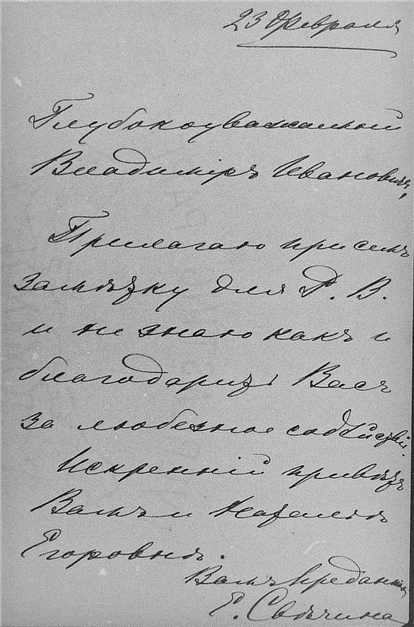 23 Февраля
Глубокоуважаемый
Владиміръ Ивановичъ,
Прилагаю при семъ
замѣтку для Р. В.
и не знаю какъ и
благодарить Васъ
за любезное содѣйствіе.
Искренній привѣтъ
Вамъ и Наталіи
Егоровнѣ.
Вамъ преданная
Е. Свѣчина